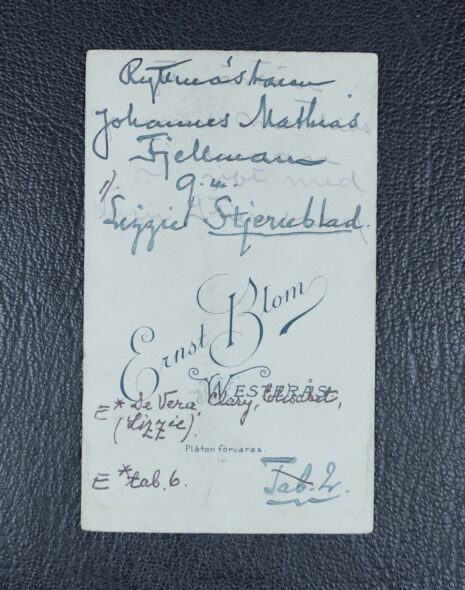 Ryttmästaren
Johannes Mathias
Fjellman
1). g. m.
med
Lizzie Stjerneblad.
Ernst Blom
WESTERÅS.
E* De Vera, Clary, Elisabet,
(Lizzie).
Plåten förvaras.
E *tab. 6.
Tab. 2.